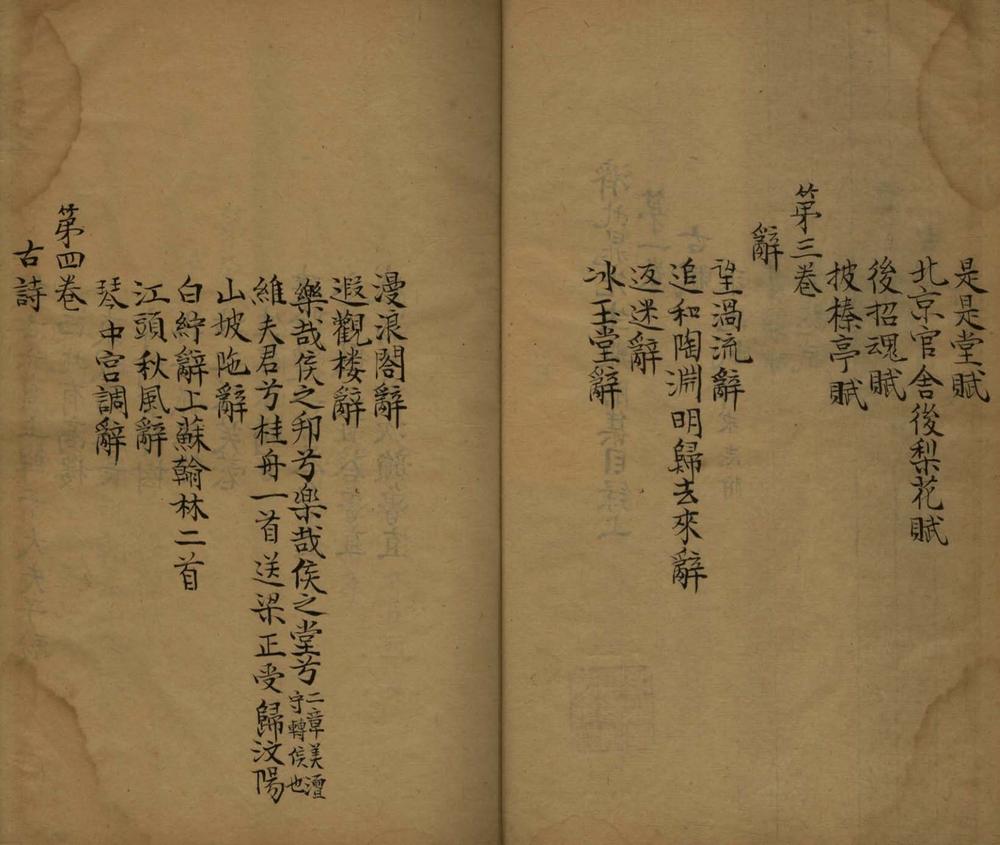 是是堂賦
北京官舍後梨花賦
後招魂賦
披榛亭賦
第三卷
辭
望渦流辭
追和陶淵明歸去來辭
返迷辭
冰玉堂辭
漫浪閣辭
遐觀楼辭
樂哉侯之邦兮樂哉侯之堂兮二章美澶守轉侯也
維夫君兮桂舟一首送梁正受歸汶陽
山坡陁辭
白紵辭上蘇翰林二首
江頭秋風辭
琴中宫調辭
第四卷
古詩